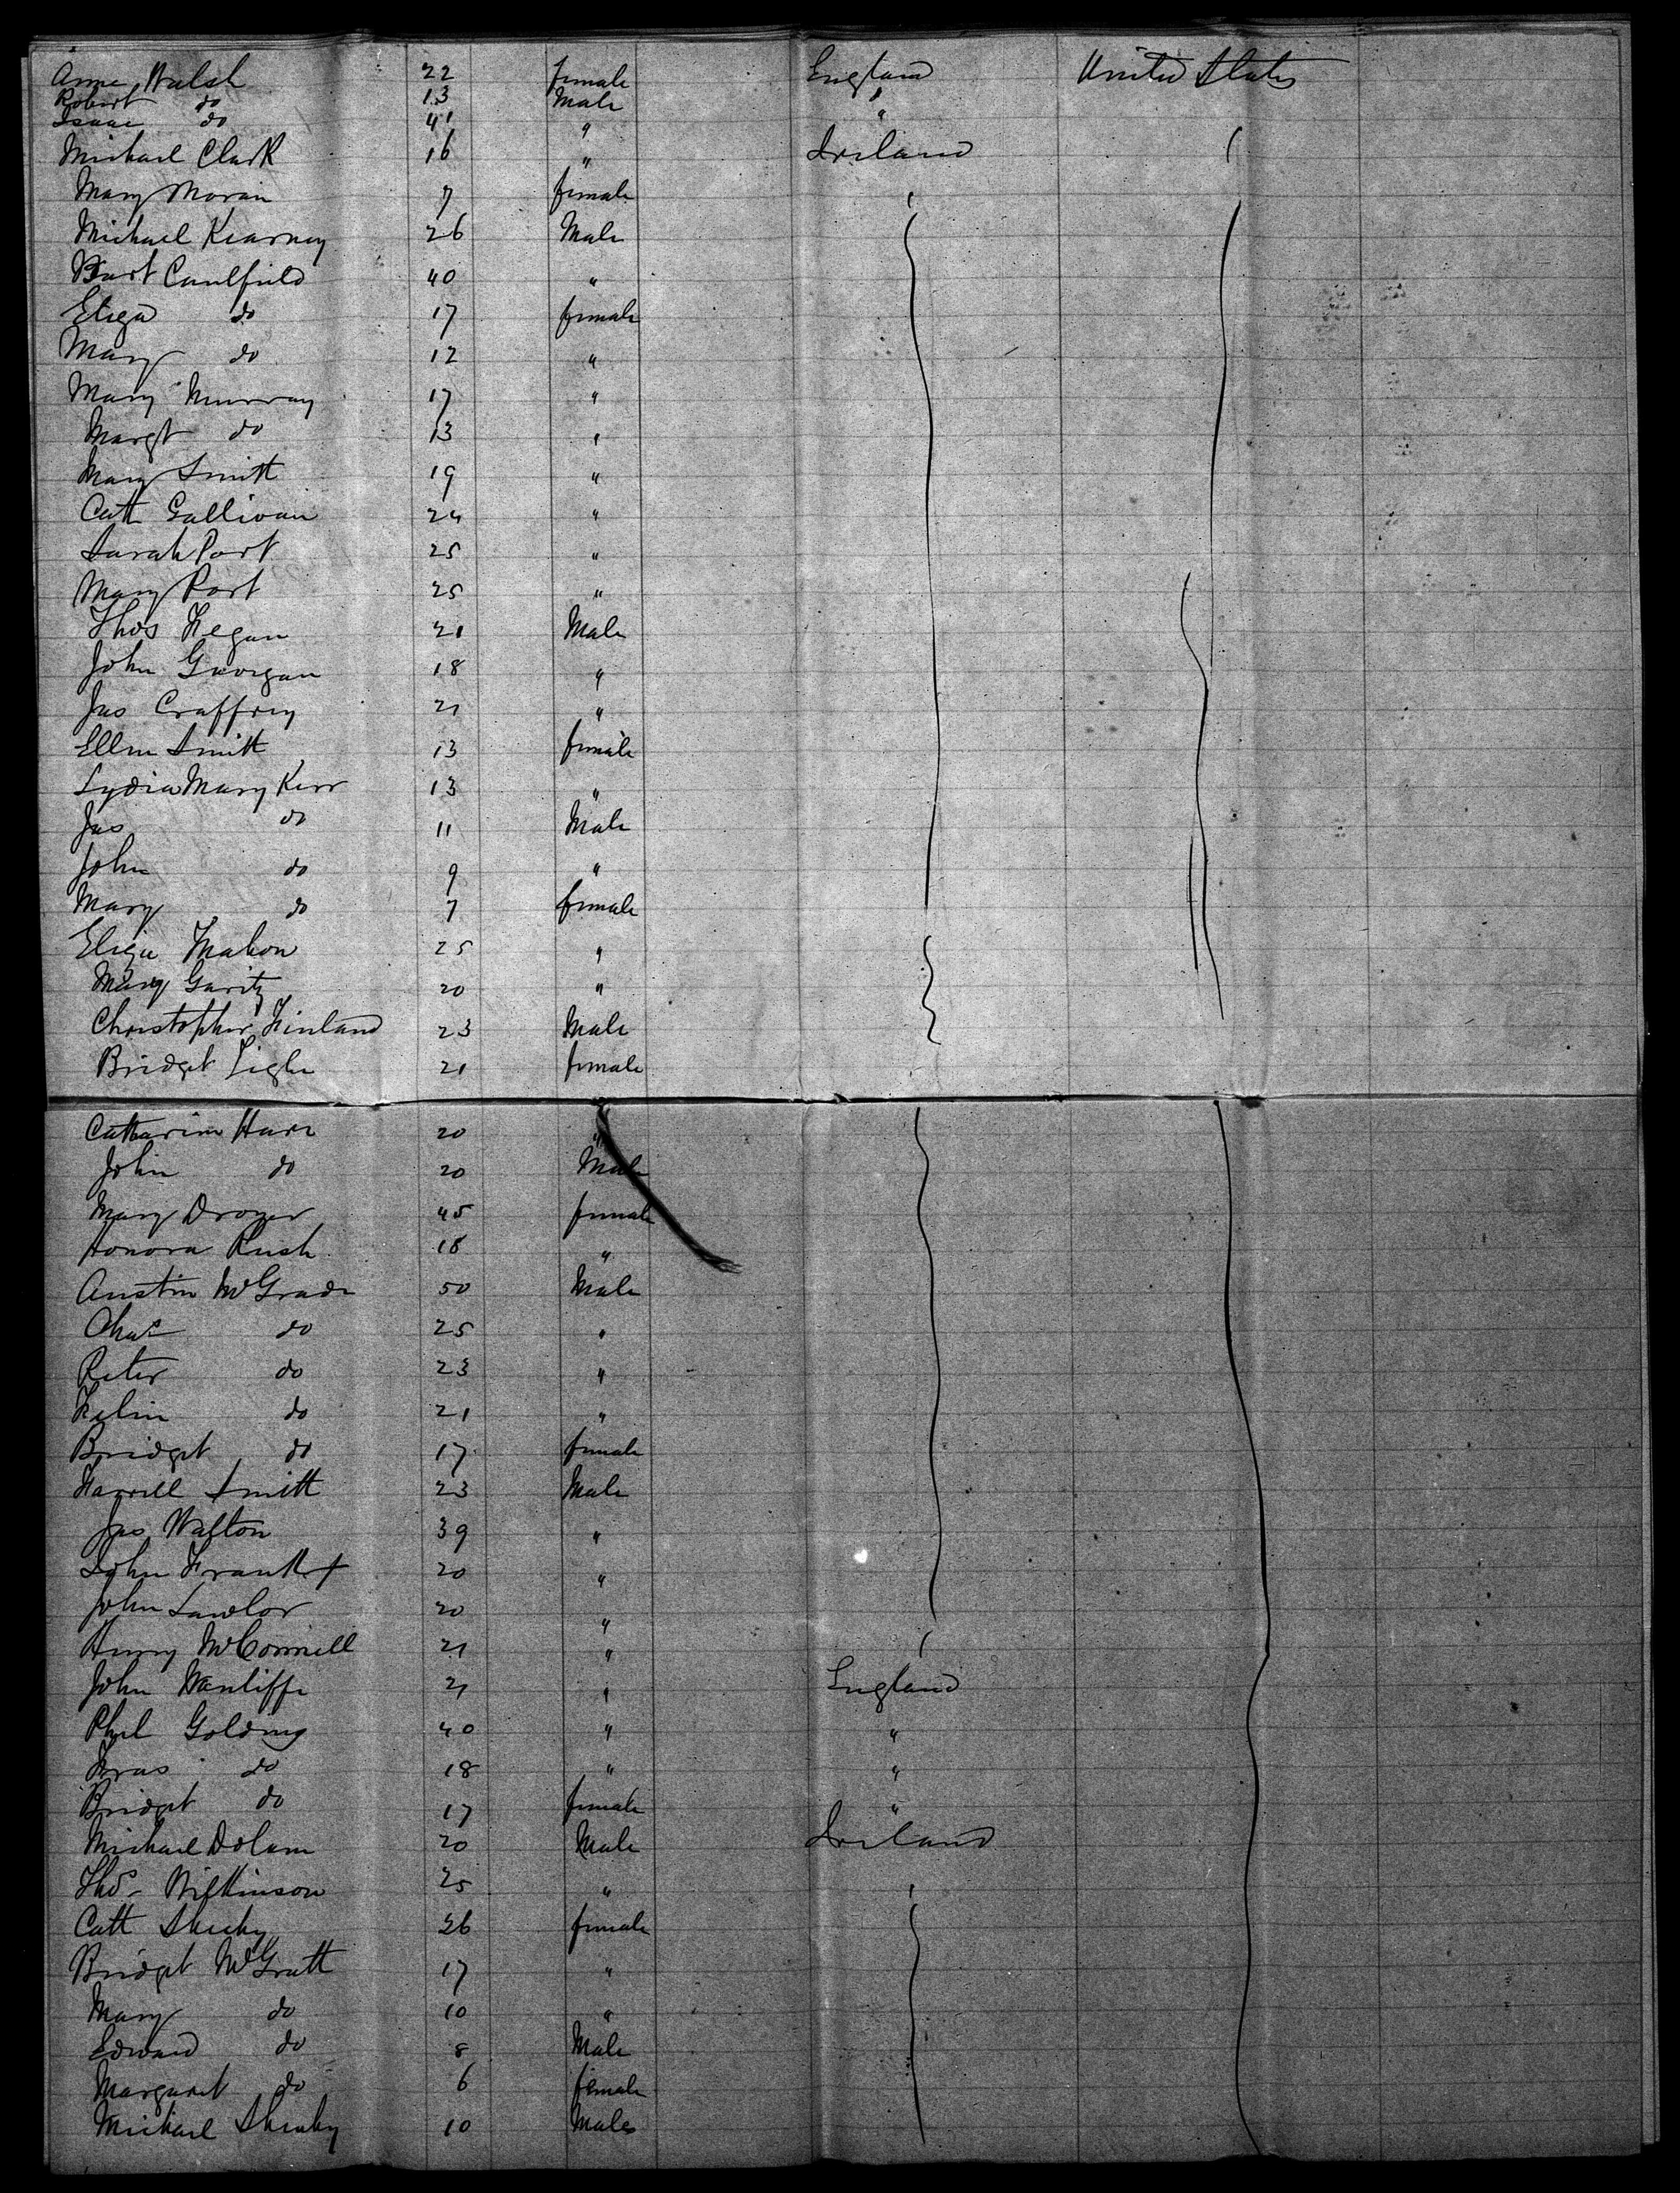 Anne Walsh 22 female England United States
Robert do 13 Male "
Isaac do 41 " "
Michael Clark 16 " Ireland
Mary Moran 7 female
Michael Kearney 26 Male
Bart Caulfield 40 "
Eliza do 17 female
Mary do 12 "
Mary Murray 17 "
Margt do 13 "
Mary Smith 19 "
Cath Gallivan 24 "
Sarah Port 25 "
Mary Port 25 "
Thos Kegan 21 Male
John Georgan 18 "
Jas Craffrey 21 "
Ellen Smith 13 female
Lydia Mary Kerr 13 "
Jas do 11 Male
John do 9 "
Mary do 7 female
Eliza Mahon 25 "
Mary Garity 20 "
Christopher Finland 23 Male
Bridget 21 female
Catharine Hare 20 "
John do 20 Male
Mary 45 female
Honora Rush 18 "
Austin McGrade 50 Male
Chas do 25 "
Peter do 23 "
do 21 "
Bridget do 17 female
Farrell Smith 23 Male
Jas Walton 39 "
John Frank 20 "
John Lawlor 20 "
Henry McConnell 21 "
John 21 " England
Phil Golding 40 " "
Fras do 18 " "
Bridget do 17 female "
Michael Dolan 20 Male Ireland
Thos Wilkinson 25 "
Cath Sheehy 26 female
Bridget McGrath 17 "
Mary do 10 "
Edward do 8 Male
Margaret do 6 female
Michael Sheehy 10 Males